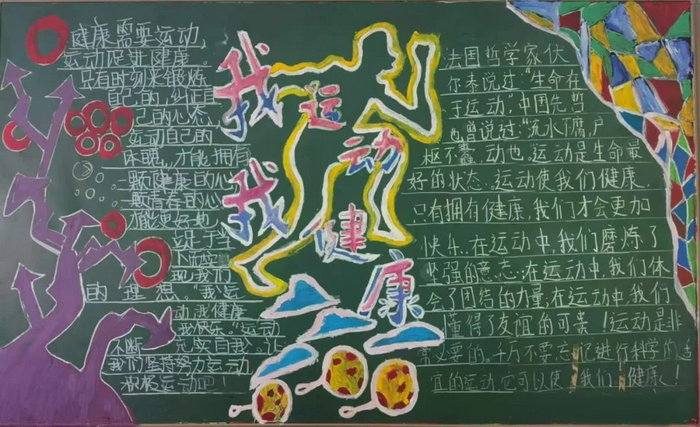 健康需要运动,
运动促进健康。
只有时刻来锻炼
自己的,纠正自
己的心态,
运动自己的
休眠,才能拥有
一颗健康的心
一颗青春的心
才能更好地
立足于当
现我们
的理想"我运
动我健康
我快乐."运动
不断 充实自我,让
我们坚持努力运动
积极运动吧!
我运动
我健康
法国哲学家伏
尔泰说过:"生命在
于运动"中国先哲
也曾说过:"流水不腐,户
枢不蠹,动也.运动是生命最
好的状态.运动使我们健康.
只有拥有健康,我们才会更加
快乐.在运动中,我们磨炼了
坚强的意志:在运动中,我们体
会了团结的力量.在运动中我们
懂得了友谊的可贵!运动是非
常必要的,千万不要忘记进行科学的适
宜的运动,它可以使我们健康!